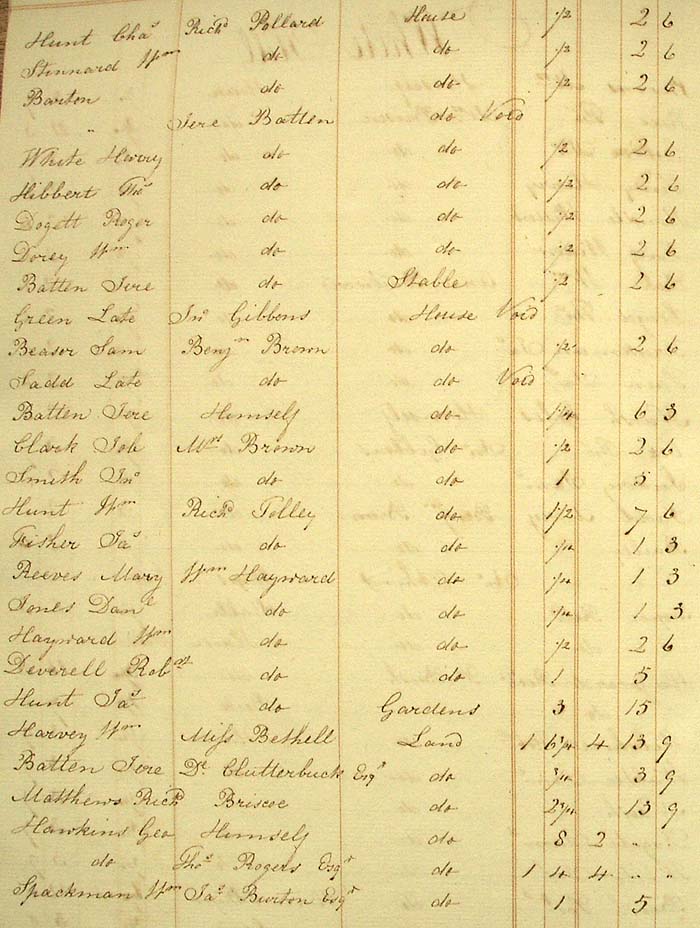 Hunt Chas Richd Pollard House 1/2 2 6
Stennard Wm do do 1/2 2 6
Barton do do 1/2 2 6
" Jere Batten do Void
White Harry do do 1/2 2 6
Hibbert Thos do do 1/2 2 6
Dogett Roger do do 1/2 2 6
Dorey Wm do do 1/2 2 6
Batten Jere do Stable 1/2 2 6
Green Late Jno Gibbens House Void
Beaser Sam Benjn Brown do 1/2 2 6
Sadd Late do do Void
Batten Jere Himself do 1 1/4 6 3
Clark Job Mrs Brown do 1/2 2 6
Smith Jno do do 1 5
Hunt Wm Richd Tolley do 1 1/2 7 6
Fisher Jas do do 1/4 1 3
Reeves Mary Wm Hayward do 1/4 1 3
Jones Danl do do 1/4 1 3
Hayward Wm do do 1/2 2 6
Deverell Robrt do do 1 5
Hunt Jas do Gardens 3 15
Harvey Wm Miss Bethell Land 1 6 3/4 4 13 9
Batten Jere Dr Clutterbuck Esqr do 3/4 3 9
Matthews Richd Briscoe do 2 3/4 13 9
Hawkins Geo Himself do 8 2 " "
do Thos Rogers Esqr do 1 4 4 " "
Spackman Wm Jas Burton Esqr do 1 5